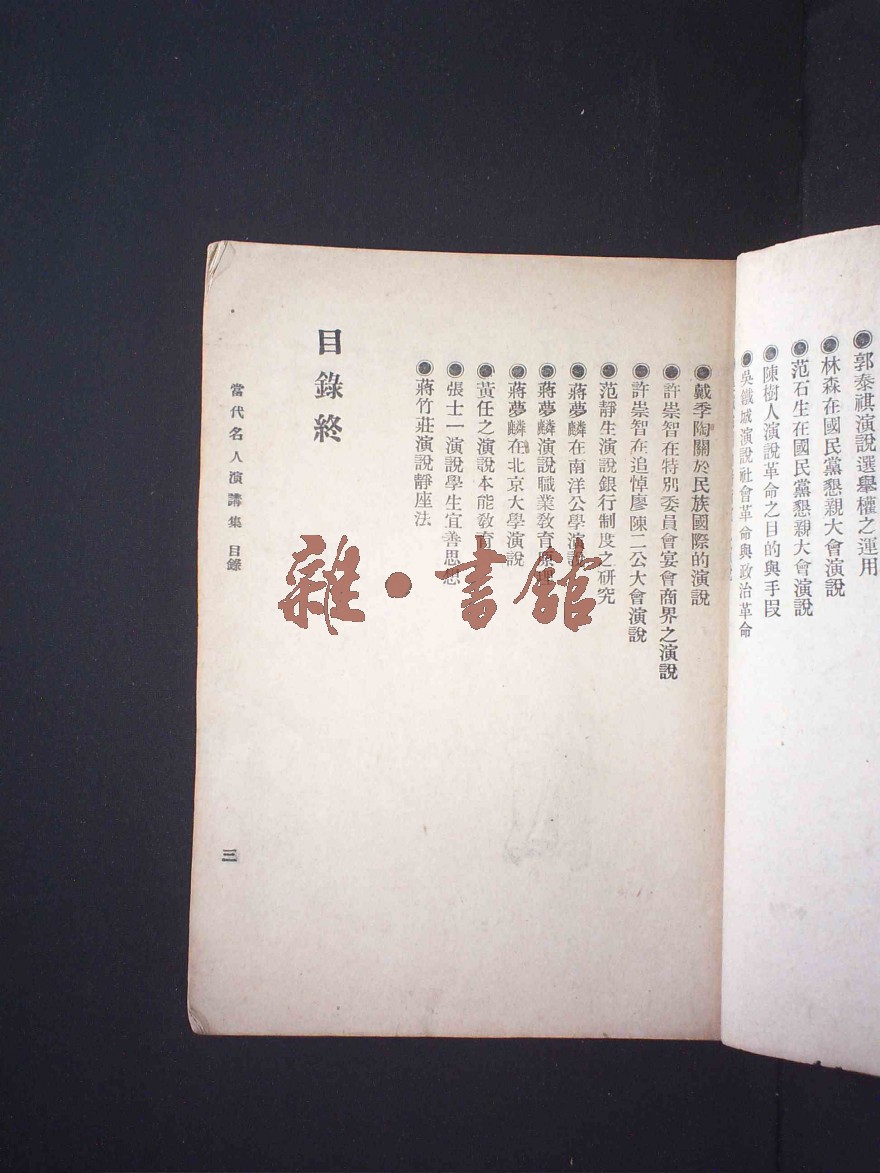 郭泰祺演說選舉權之運用
林森在國民黨懇親大會演說
范石生在國民黨懇親大會演說
陳樹人演說革命之目的與手段
吳鐵城演說社會革命與政治革命
戴季陶關於民族國際的演說
許崇智在特別委員會宴會商界之演說
許崇智在追悼廖陳二公大會演說
范靜生演說銀行制度之研究
蔣夢麟在南洋公學演說
蔣夢麟演說職業敎育原理
蔣夢麟在北京大學演說
黃任之演說本能敎育
張士一演說學生宜善思想
蔣竹莊演說靜座法
目錄終
當代名人演講集 目錄
三
雜·書館